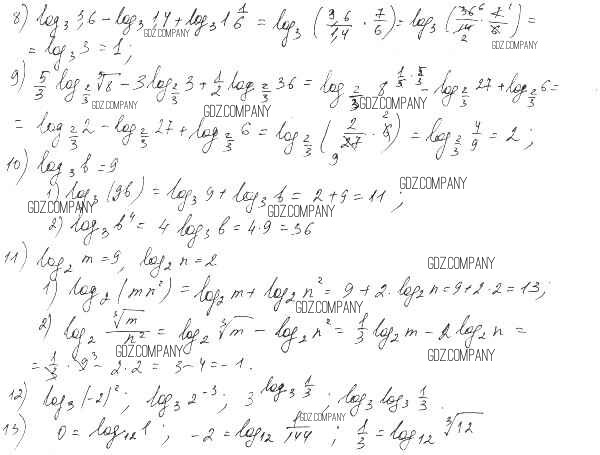 8) log₃ 3,6 - log₃ 1,4 + log₃ 1 1/6 = log₃ (3,6/1,4 · 7/6) = log₃ (36/14 · 7/6) =
GDZ.COMPANY
GDZ.COMPANY
= log₃ 3 = 1;
9) 5/3 log_{2/3} ⁵√8 - 3 log_{2/3} 3 + 1/2 log_{2/3} 36 = log_{2/3} 8^{1/5 · 5/3} - log_{2/3} 27 + log_{2/3} 6 =
GDZ.COMPANY
GDZ.COMPANY
GDZ.COMPANY
= log_{2/3} 2 - log_{2/3} 27 + log_{2/3} 6 = log_{2/3} (2/27 · 6) = log_{2/3} 4/9 = 2;
10) log₃ b = 9
1) log₃ (9b) = log₃ 9 + log₃ b = 2 + 9 = 11;
GDZ.COMPANY
GDZ.COMPANY
GDZ.COMPANY
2) log₃ b⁴ = 4 log₃ b = 4·9 = 36
11) log₂ m = 9, log₂ n = 2
GDZ.COMPANY
1) log₂ (mn²) = log₂ m + log₂ n² = 9 + 2·log₂ n = 9 + 2·2 = 13;
GDZ.COMPANY
2) log₂ ³√m/n² = log₂ ³√m - log₂ n² = 1/3 log₂ m - 2 log₂ n =
GDZ.COMPANY
GDZ.COMPANY
= 1/3 · 9 - 2·2 = 3 - 4 = -1.
12) log₃ (-2)²; log₃ 2⁻³; 3^{log₃ 1/3}; log₃ log₃ 1/3.
GDZ.COMPANY
13) 0 = log₁₂ 1; -2 = log₁₂ 1/144; 1/3 = log₁₂ ³√12